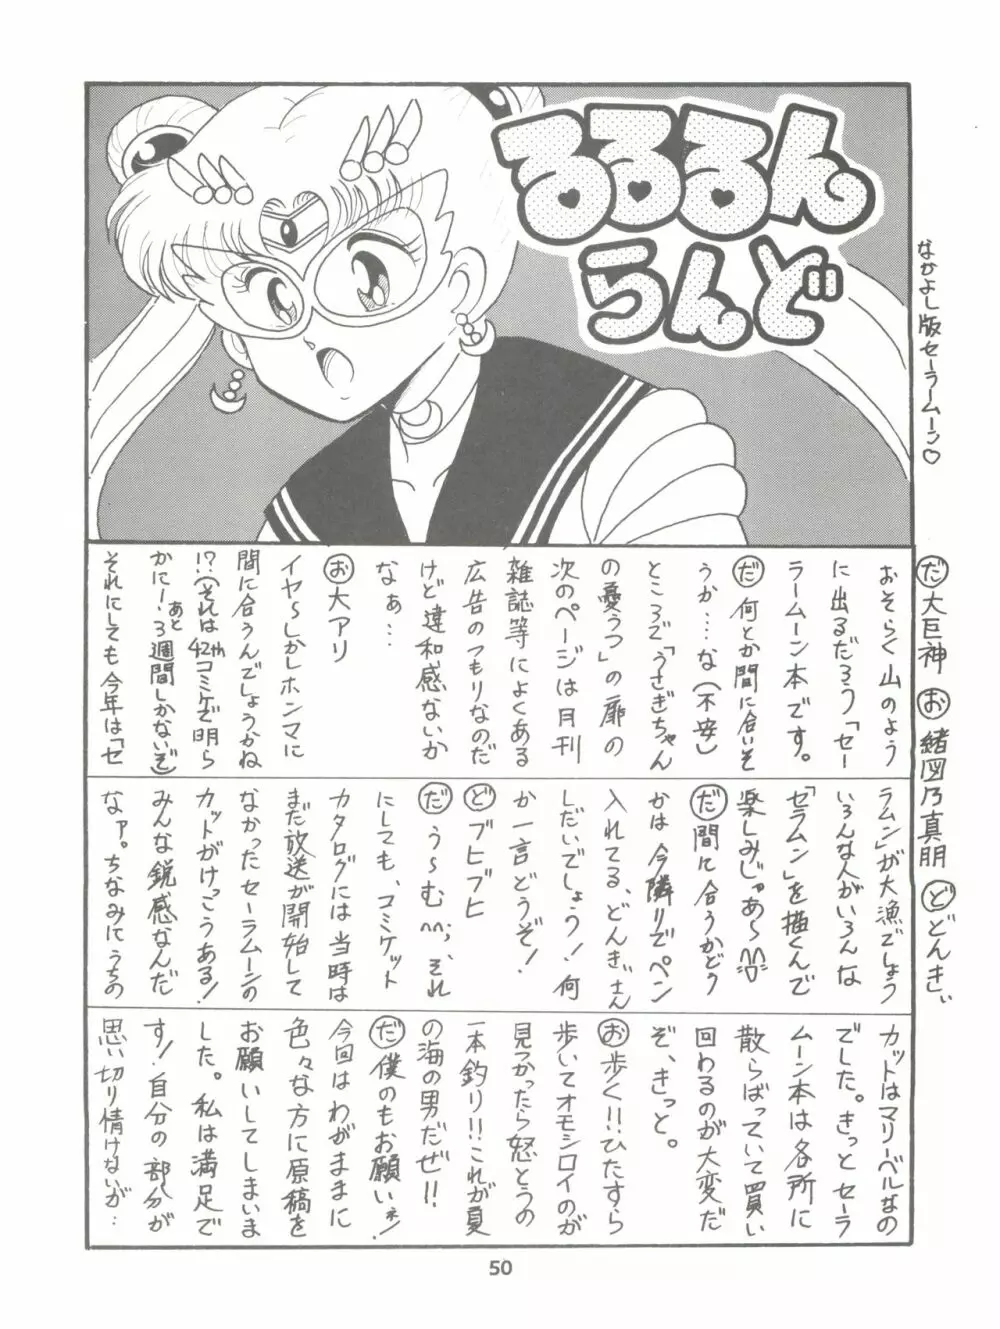 るるるん
らんど
なかよし版セーラームーン♡
だ大巨神 お緒図乃真朋 どどんぎぃ
おそらく山のよう
に出るだろう「セー
ラームーン本です。
だ 何とか間に合いそ
うか‥‥な(不安)
ところで「うさぎちゃん
の憂うつ」の扉の
次のページは月刊
雑誌等によくある
広告のつもりなのだ
けど違和感ないか
なぁ…
お 大アリ
イヤ〜しかしホンマに
間に合うんでしょうかね
!?(それは42thコミケで明ら
かに!あと3週間しかないぞ)
それにしても今年は「セ
ラムン」が大漁でしょう
いろんな人がいろんな
「セラムン」を描くんで
楽しみじゃあ〜
だ 間に合うかどう
かは今隣りでペン
入れてる、どんぎぃさん
しだいでしょう!何
か一言どうぞ!
ど ブヒブヒ
だ う〜む^^;それ
にしても、コミケット
カタログには当時は
まだ放送が開始して
なかったセーラームーンの
カットがけっこうある!
みんな鋭感なんだ
なァ。ちなみにうちの
カットはマリーベルなの
でした。きっとセーラ
ームーン本は各所に
散らばっていて買い
回わるのが大変だ
ぞ、きっと。
お 歩く!!ひたすら
歩いてオモシロイのが
見つかったら怒とうの
一本釣り!!これが夏
の海の男だぜ!!
だ 僕のもお願いネ!
今回はわがままに
色々な方に原稿を
お願いしてしまいま
した。私は満足で
す!自分の部分が
思い切り情けないが‥
50